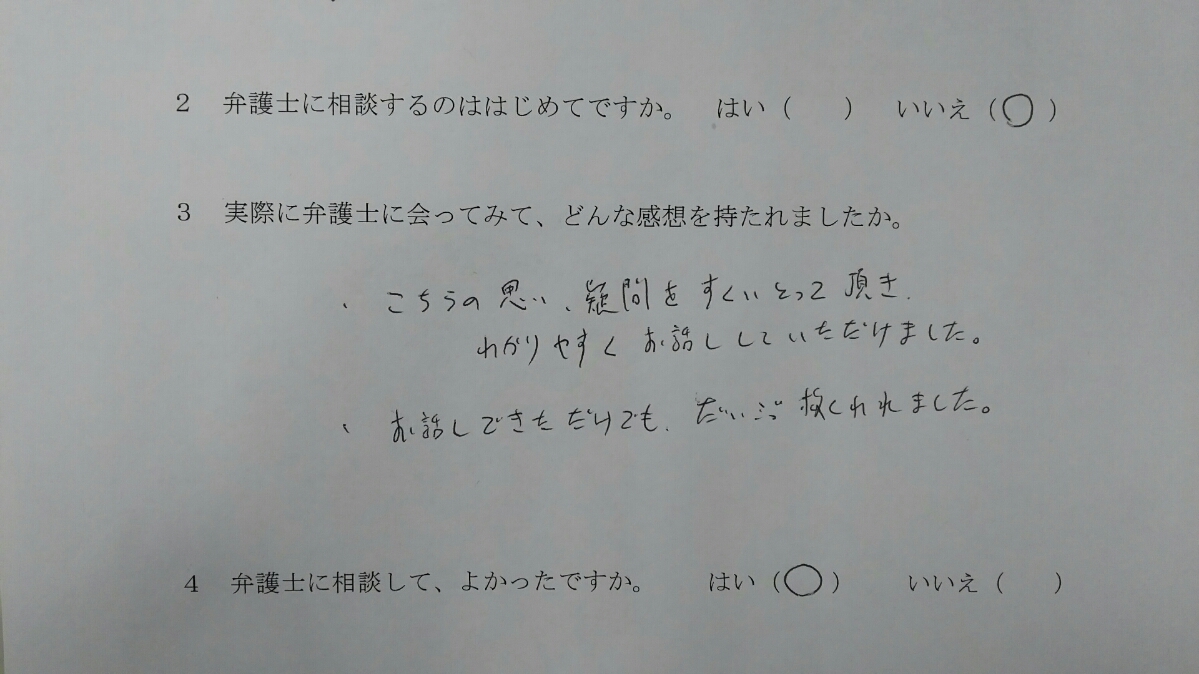 2 弁護士に相談するのははじめてですか。 はい( ) いいえ(○)
3 実際に弁護士に会ってみて、どんな感想を持たれましたか。
・ こちらの思い、疑問をすくいとって頂き、
わかりやすくお話ししていただけました。
・ お話しできただけでも、だいぶ救くわれました。
4 弁護士に相談して、よかったですか。 はい(○) いいえ( )